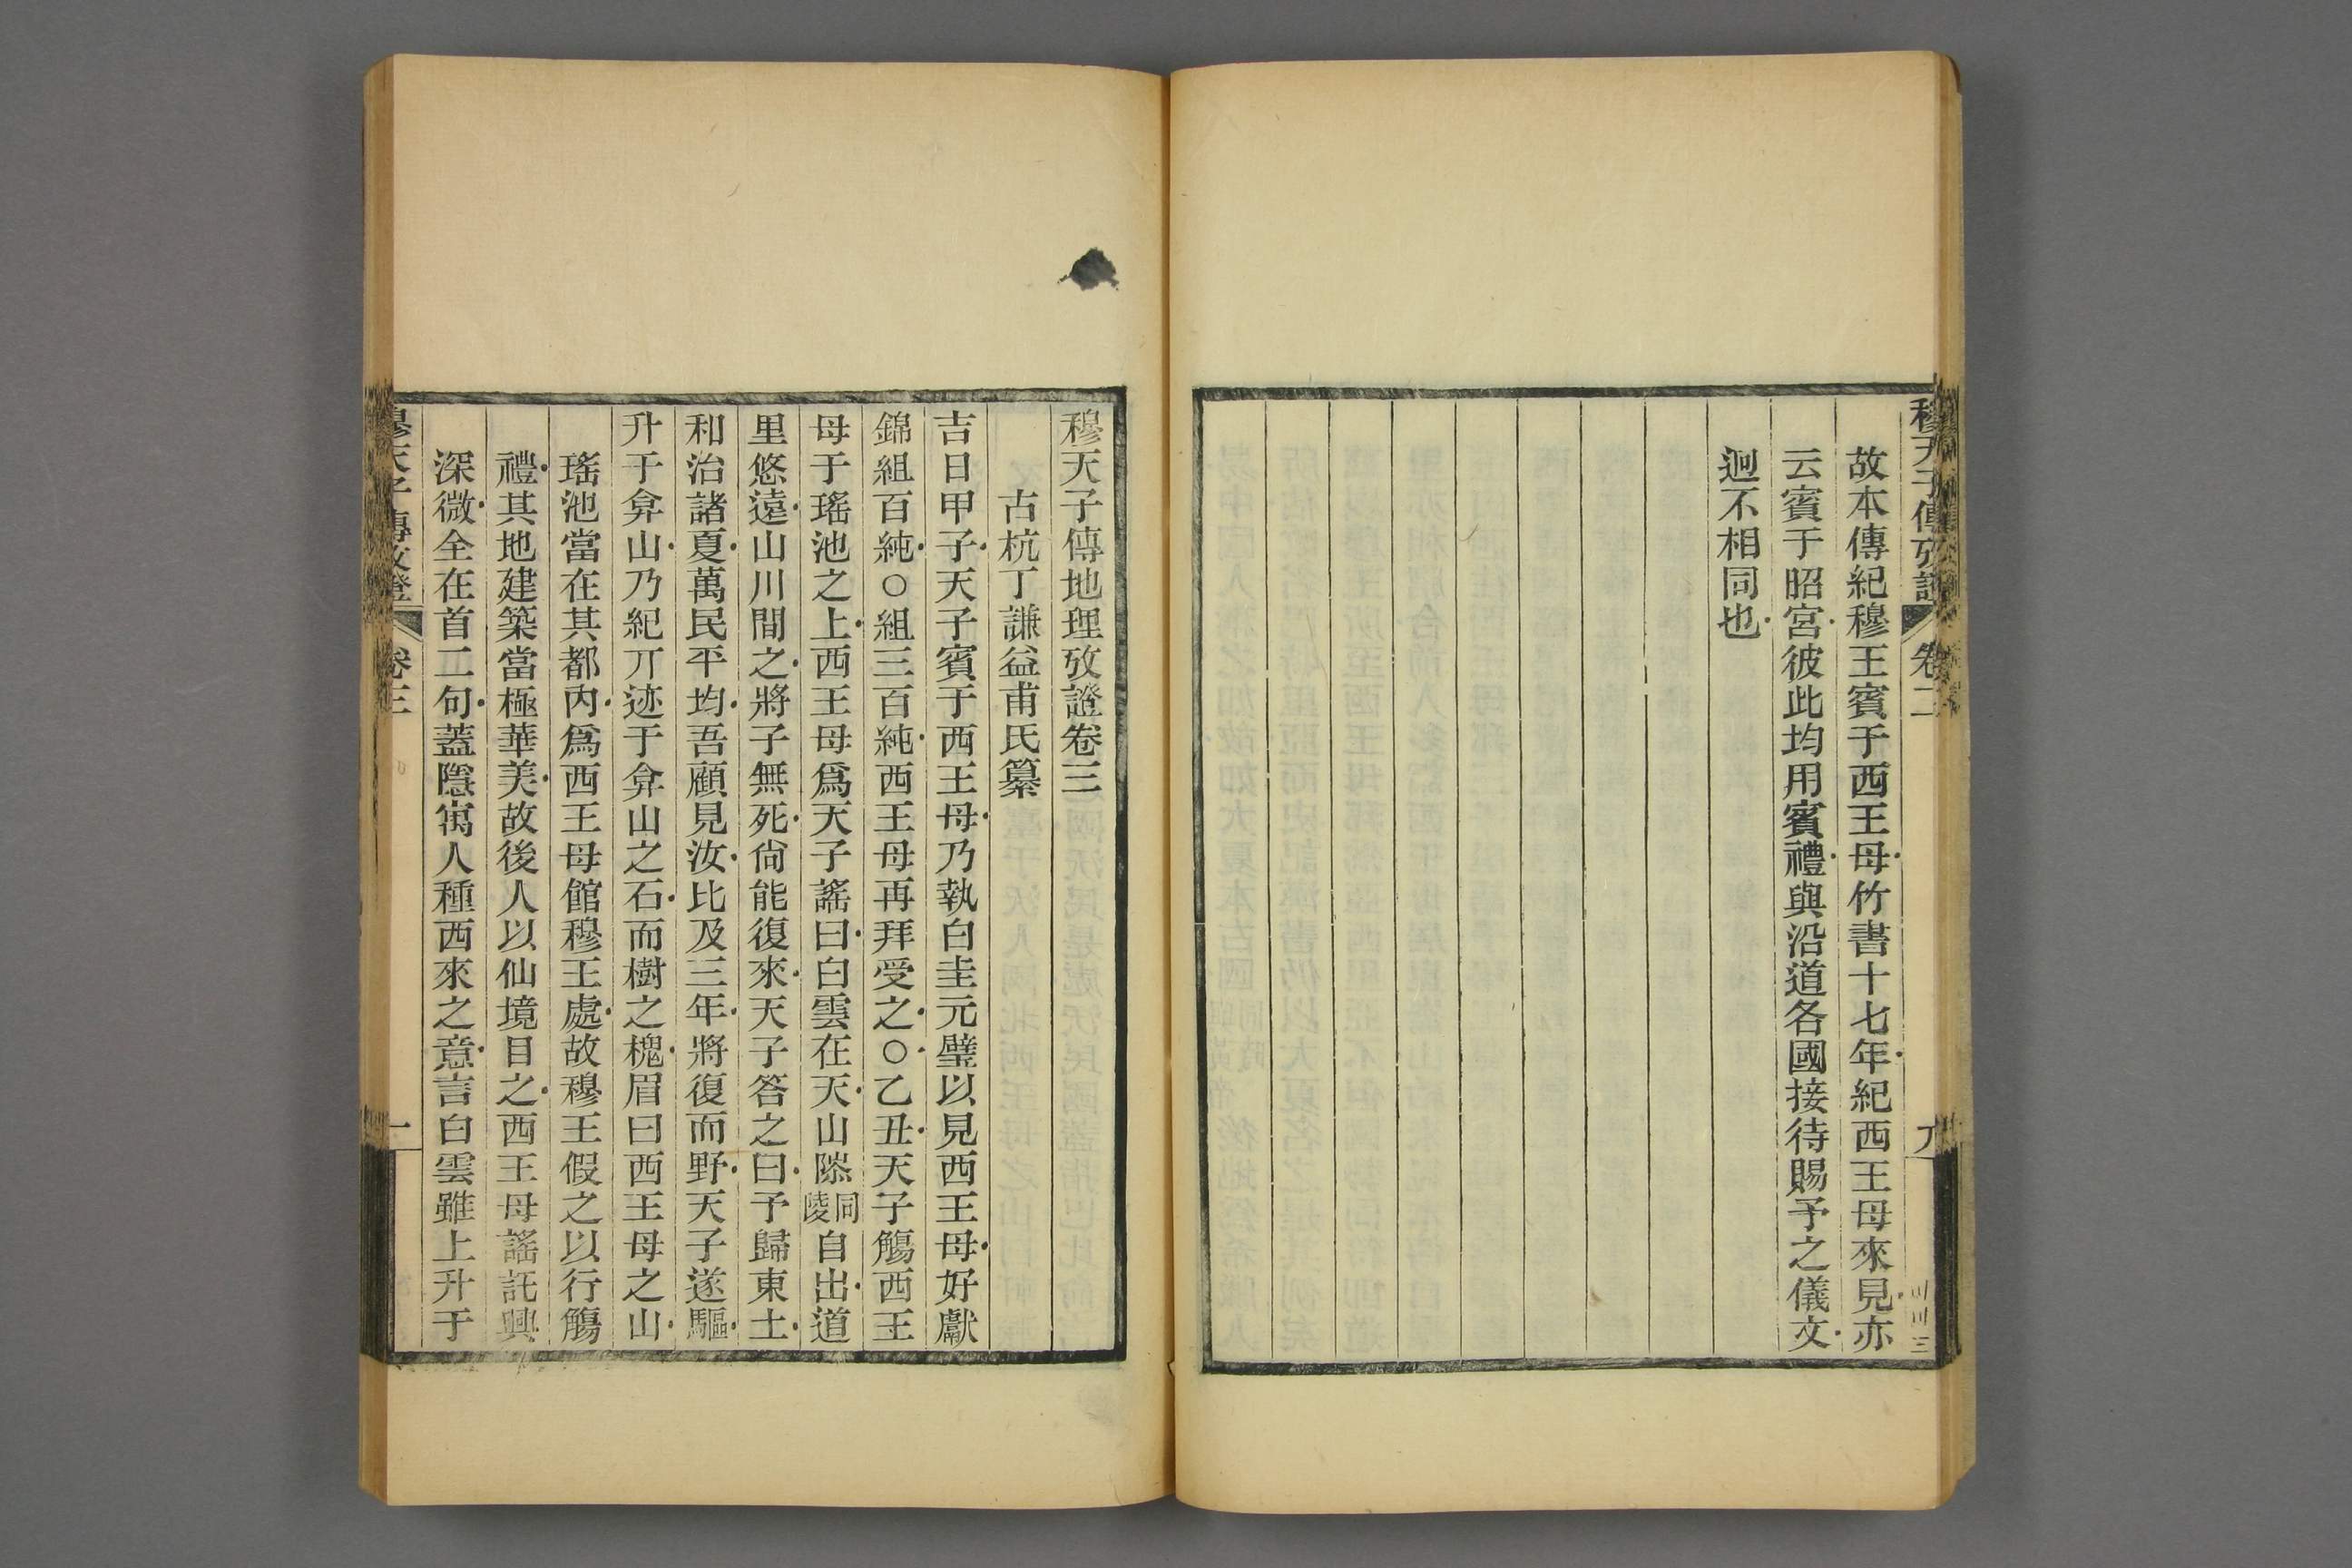 穆天子傳攷證 卷二
故本傳紀穆王賓于西王母竹書十七年紀西王母來見亦
云賓于昭宮彼此均用賓禮與沿道各國接待賜予之儀文
迥不相同也
穆天子傳地理攷證卷三
古杭丁謙益甫氏纂
吉日甲子天子賓于西王母乃執白圭元璧以見西王母好獻
錦組百純○組三百純西王母再拜受之○乙丑天子觴西王
母于瑤池之上西王母爲天子謠曰白雲在天山䧙同陵自出道
里悠遠山川間之將子無死尙能復來天子答之曰予歸東土
和治諸夏萬民平均吾顧見汝比及三年將復而野天子遂驅
升于弇山乃紀丌迹于弇山之石而樹之槐眉曰西王母之山
瑤池當在其都內爲西王母館穆王處故穆王假之以行觴
禮其地建築當極華美故後人以仙境目之西王母謠託興
深微全在首二句蓋隱寓人種西來之意言白雲雖上升于
穆天子傳攷證 卷三 一